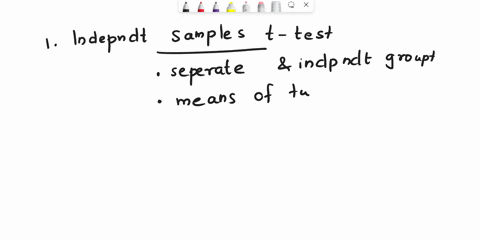 1. Indepndt samples t-test
• seperate & indpndt groupt
• means of tu